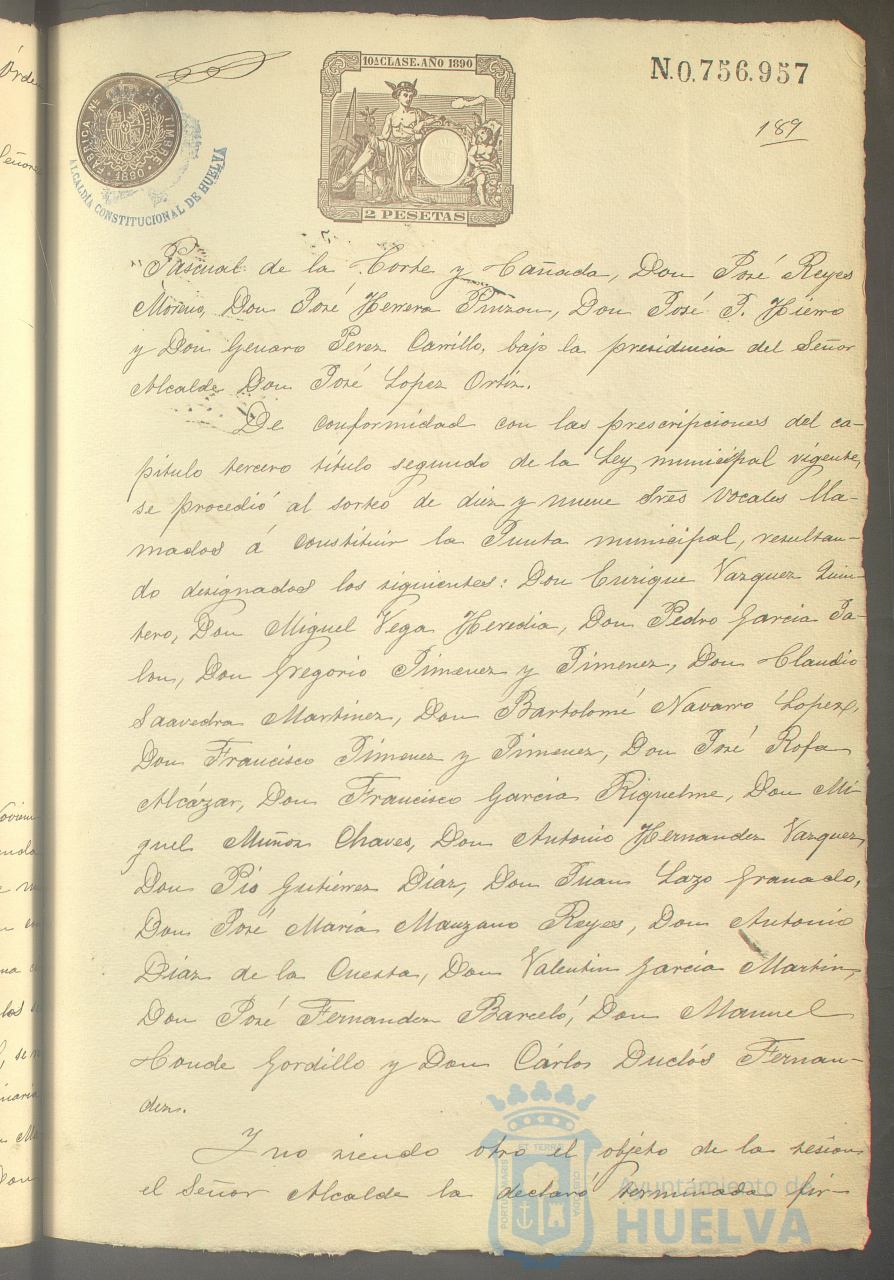 10ª CLASE. AÑO 1890
N.0.756.957
189
FABRICA NL. DEL TIMBRE
1890
ALCALDÍA CONSTITUCIONAL DE HUELVA
2 PESETAS
Pascual de la Corte y Cañada, Don José Reyes
Moreno, Don José Herrera Pinzon, Don José P. Hierro
y Don Genaro Perez Carrillo, bajo la presidencia del Señor
Alcalde Don José Lopez Ortiz.
De conformidad con las prescripciones del ca-
pítulo tercero título segundo de la Ley municipal vigente,
se procedió al sorteo de diez y nueve Sres vocales lla-
mados á constituir la Junta municipal, resultan-
do designados los siguientes: Don Enrique Vazquez Quin-
tero, Don Miguel Vega Heredia, Don Pedro Garcia Ja-
lon, Don Gregorio Jimenez y Jimenez, Don Claudio
Saavedra Martinez, Don Bartolomé Navarro Lopez,
Don Francisco Jimenez y Jimenez, Don José Rofa
Alcázar, Don Francisco Garcia Riquelme, Don Mi-
guel Muñoz Chaves, Don Antonio Hernandez Vazquez,
Don Pio Gutiérrez Diaz, Don Juan Lazo Granado,
Don José María Manzano Reyes, Don Antonio
Diaz de la Cuesta, Don Valentin Garcia Martin,
Don José Fernandez Barceló, Don Manuel
Conde Gordillo y Don Cárlos Duclós Fernan-
dez.
Y no siendo otro el objeto de la sesion
el Señor Alcalde la declaró terminada fir-
Ayuntamiento de
HUELVA